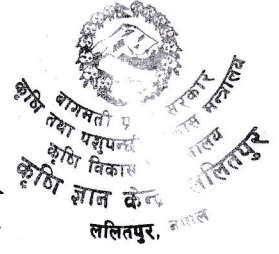 बागमती प्र सरकार
कृषि तथा पशुपन्छी कास मन्त्रालय
कृषि विकास नालय
कृषि ज्ञान केन्द्र ललितपुर
ललितपुर, नेपाल